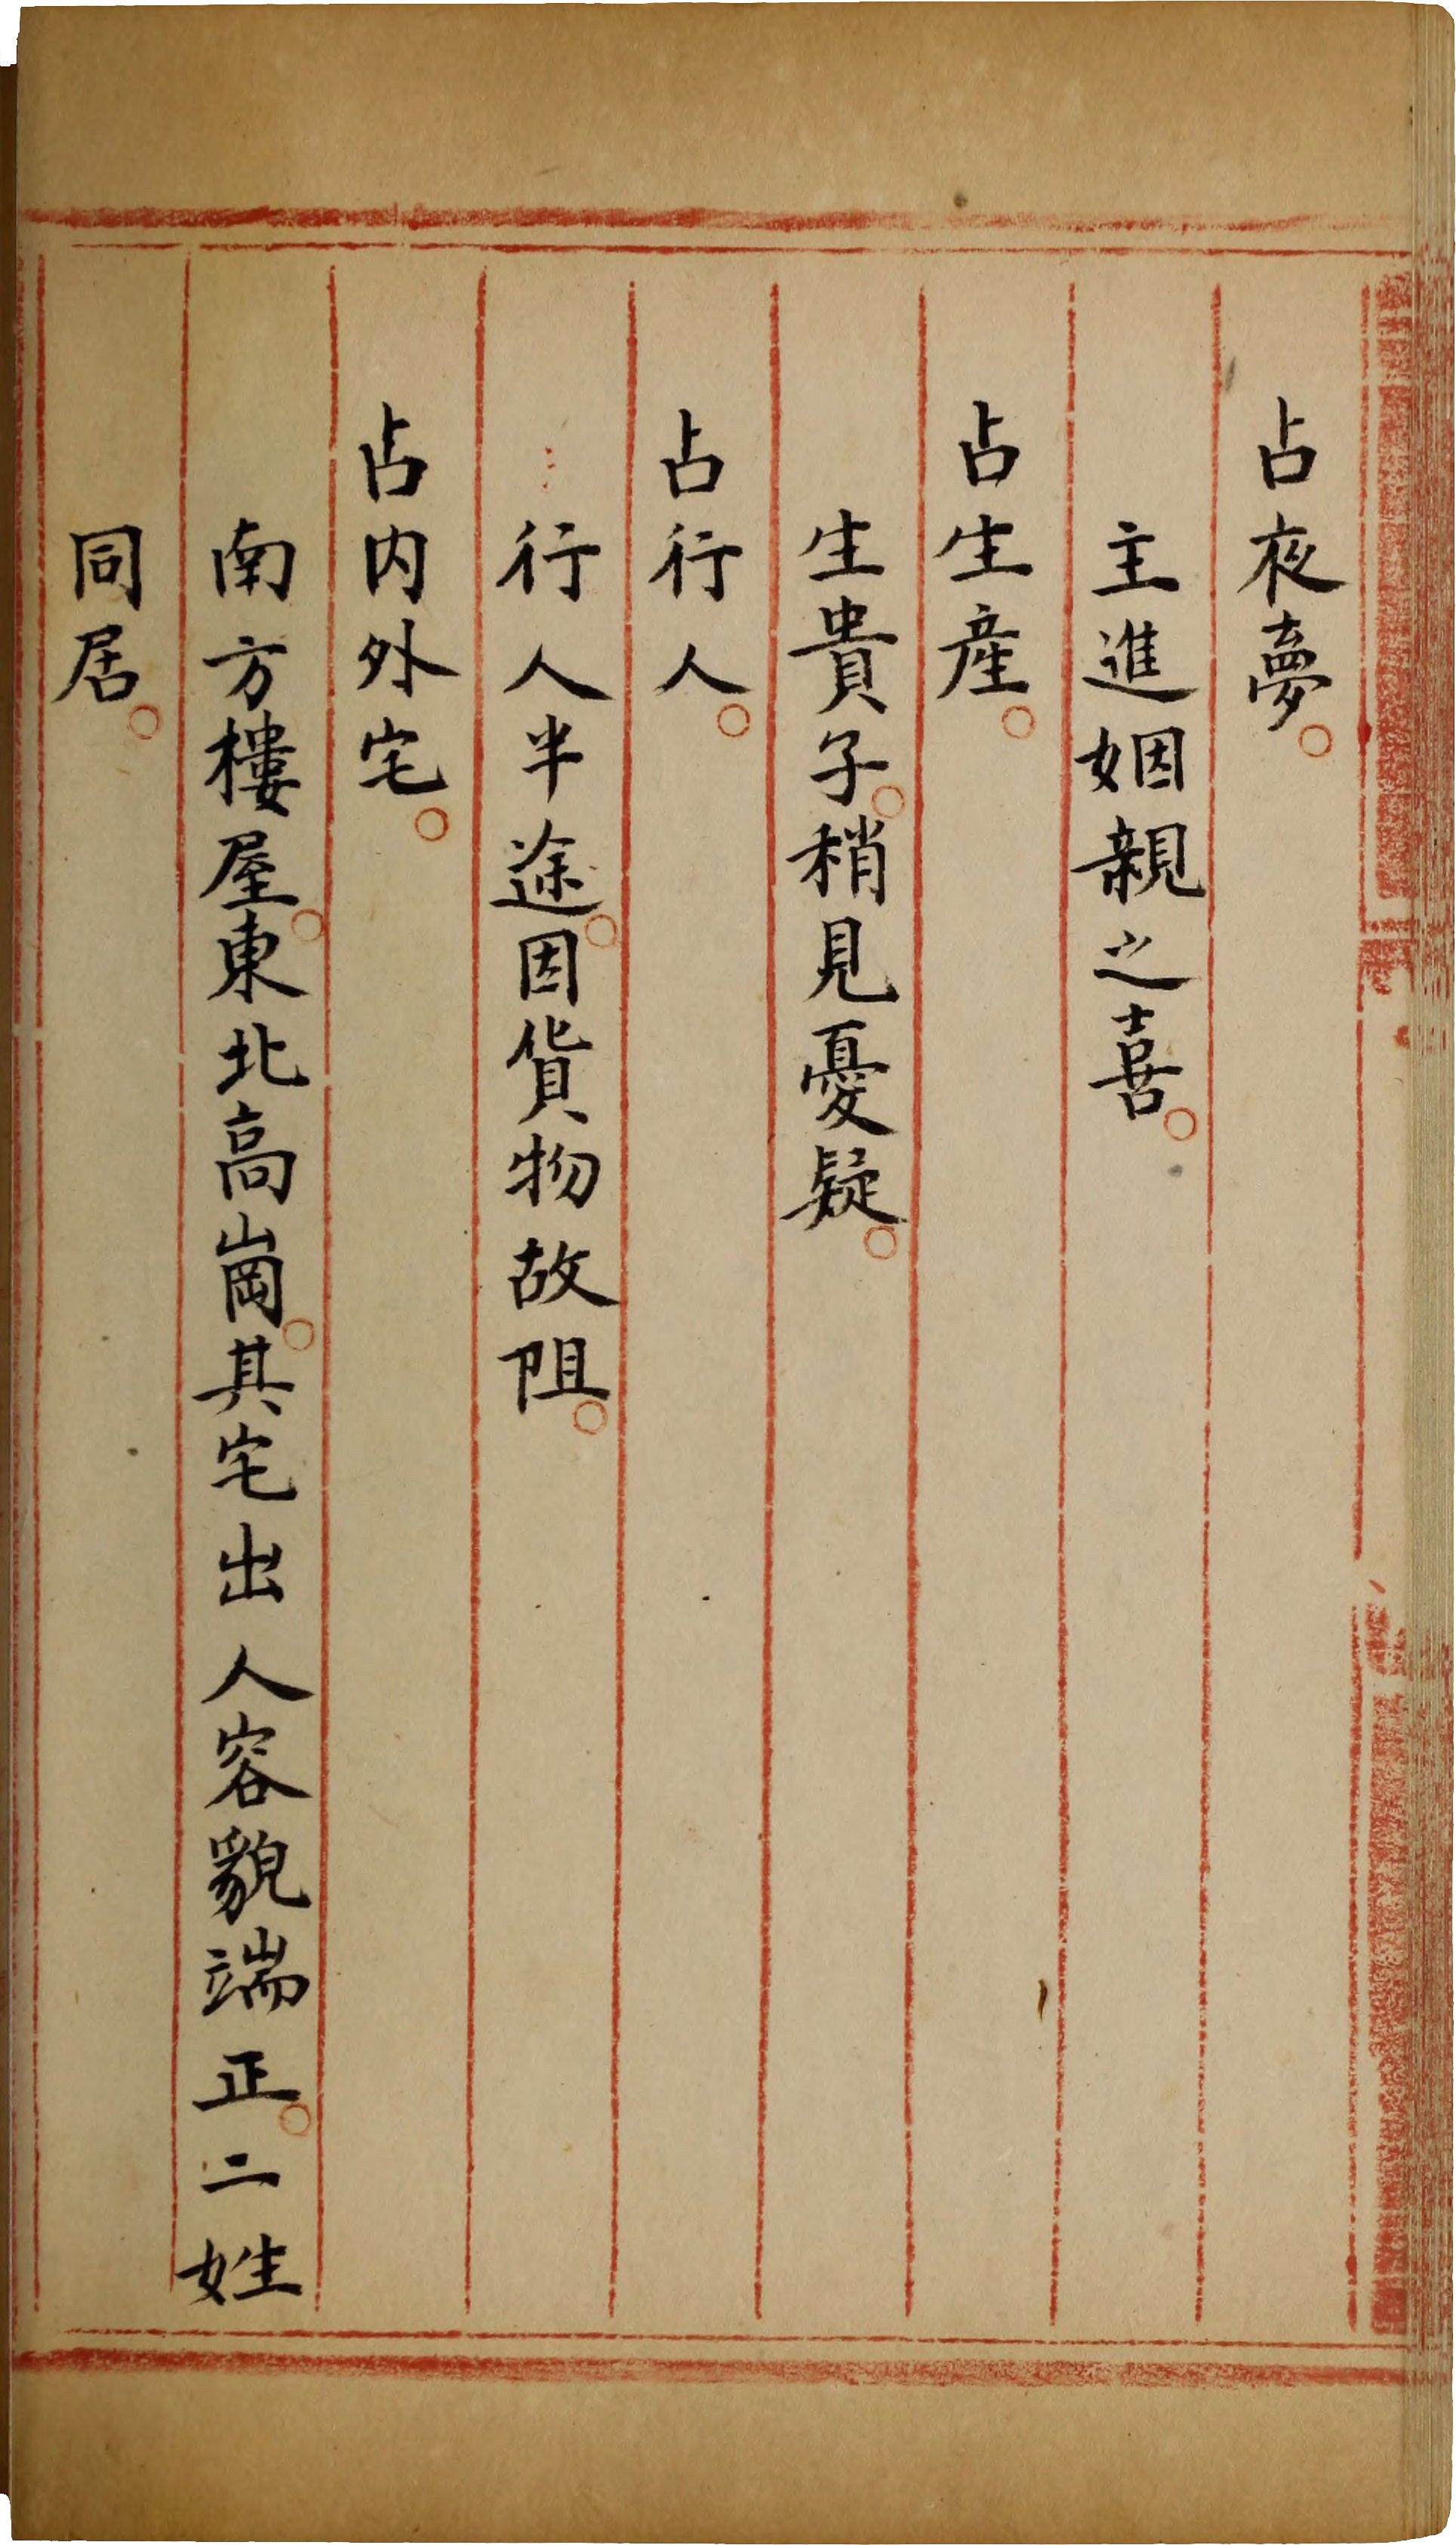 占夜夢○
主進姻親之喜○
占生產○
生貴子○稍見憂疑○
占行人○
行人半途○因貨物故阻○
占内外宅○
南方樓屋○東北高崗○其宅出人容貌端正○二姓
同居○